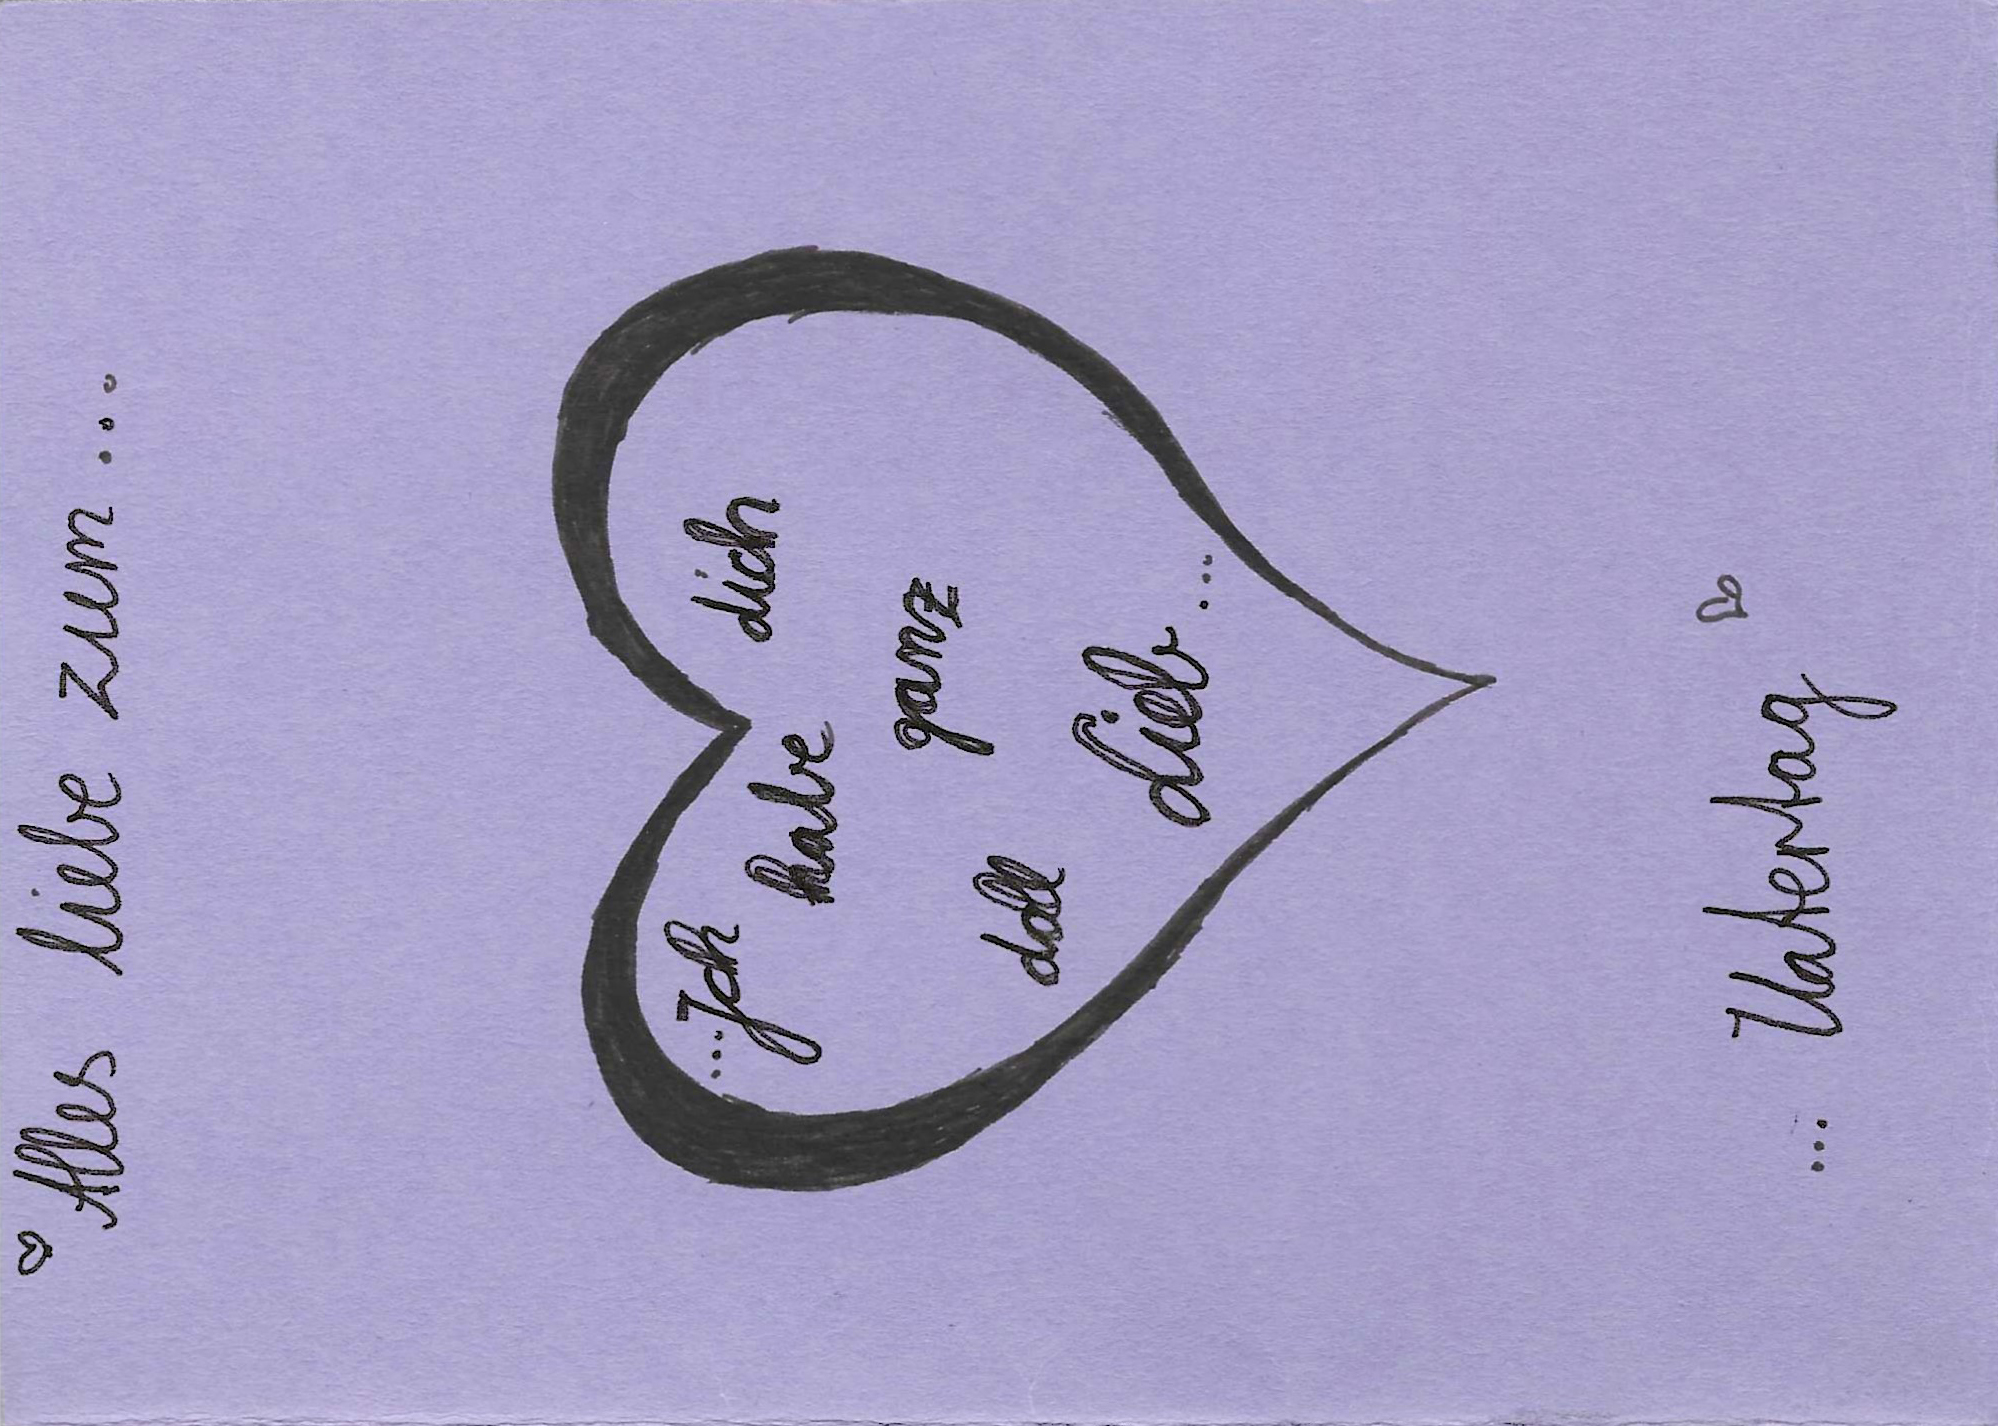 Alles liebe zum....
...Ich dich
habe
ganz
doll
Lieb...
... Vatertag